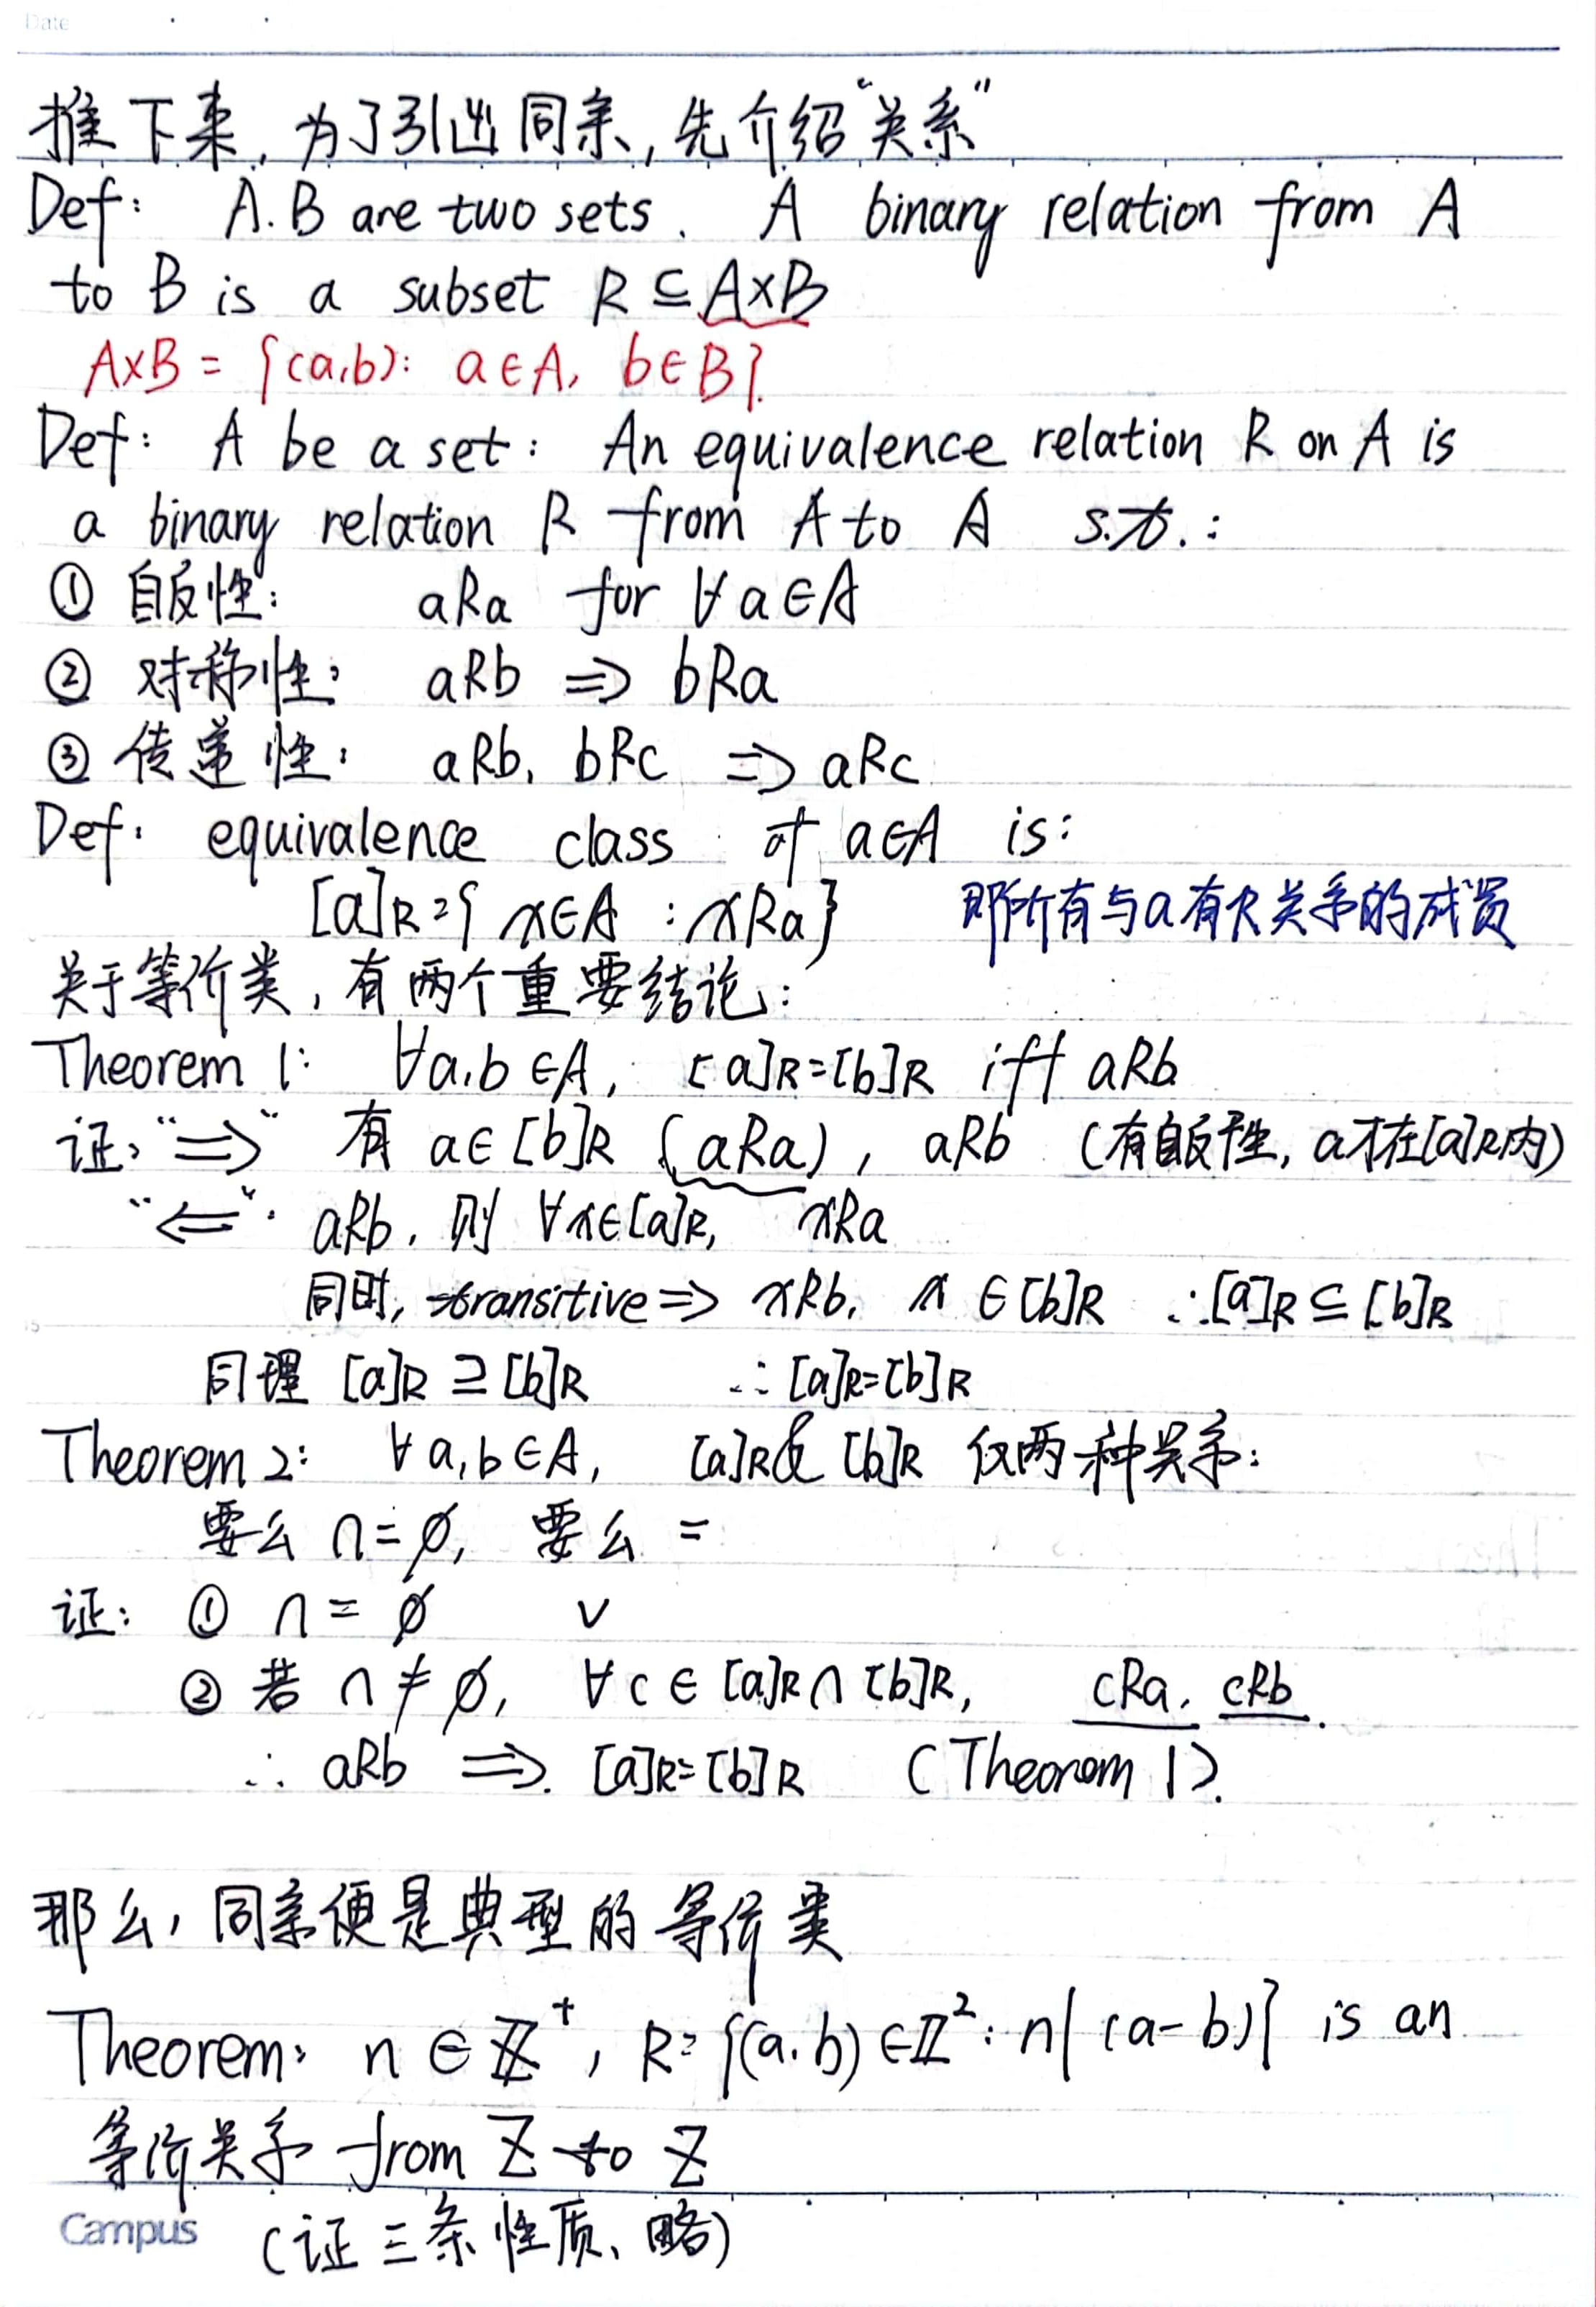 Date
接下来，为了引出同余，先介绍“关系”
Def: A.B are two sets. A binary relation from A
to B is a subset R ⊆ A×B
A×B = {(a,b): a∈A, b∈B}.
Def: A be a set: An equivalence relation R on A is
a binary relation R from A to A s.t.:
① 自反性: aRa for ∀a∈A
② 对称性: aRb ⇒ bRa
③ 传递性: aRb, bRc ⇒ aRc
Def: equivalence class of a∈A is:
[a]R={ x∈A : xRa} 即所有与a有R关系的成员
关于等价类, 有两个重要结论:
Theorem 1: ∀a,b∈A, [a]R=[b]R iff aRb
证: “⇒” 有 a∈[b]R (aRa), aRb (有自反性, a才在[a]R内)
“⇐”: aRb, 则 ∀x∈[a]R, xRa
同时, transitive ⇒ xRb, x∈[b]R ∴[a]R ⊆ [b]R
同理 [a]R ⊇ [b]R ∴ [a]R=[b]R
Theorem 2: ∀a,b∈A, [a]R & [b]R 仅两种关系:
要么 ∩=∅, 要么 =
证: ① ∩ = ∅ ✓
② 若 ∩ ≠ ∅, ∀c ∈ [a]R ∩ [b]R, cRa, cRb.
∴ aRb ⇒ [a]R=[b]R (Theorem 1).
那么, 同余便是典型的等价类
Theorem: n ∈ ℤ⁺, R={(a,b)∈ℤ²: n|(a-b)} is an
等价关系 from ℤ to ℤ
Campus (证三条性质、略)